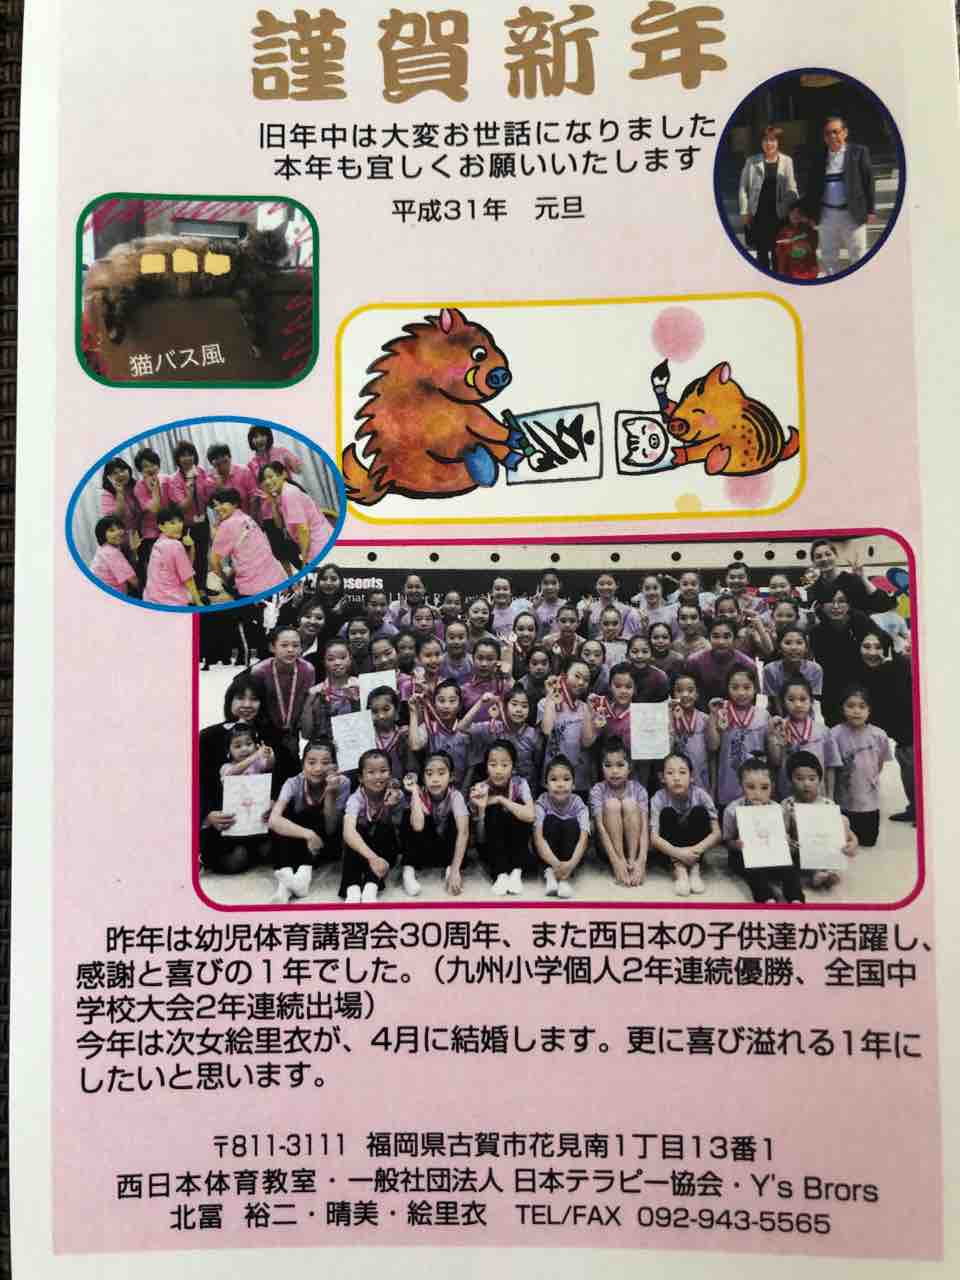 謹賀新年
旧年中は大変お世話になりました
本年も宜しくお願いいたします
平成31年 元旦
猫バス風
昨年は幼児体育講習会30周年、また西日本の子供達が活躍し、
感謝と喜びの1年でした。(九州小学個人2年連続優勝、全国中
学校大会2年連続出場)
今年は次女絵里衣が、4月に結婚します。更に喜び溢れる1年に
したいと思います。
〒811-3111 福岡県古賀市花見南1丁目13番1
西日本体育教室・一般社団法人 日本テラピー協会・Y's Brors
北冨 裕二・晴美・絵里衣 TEL/FAX 092-943-5565